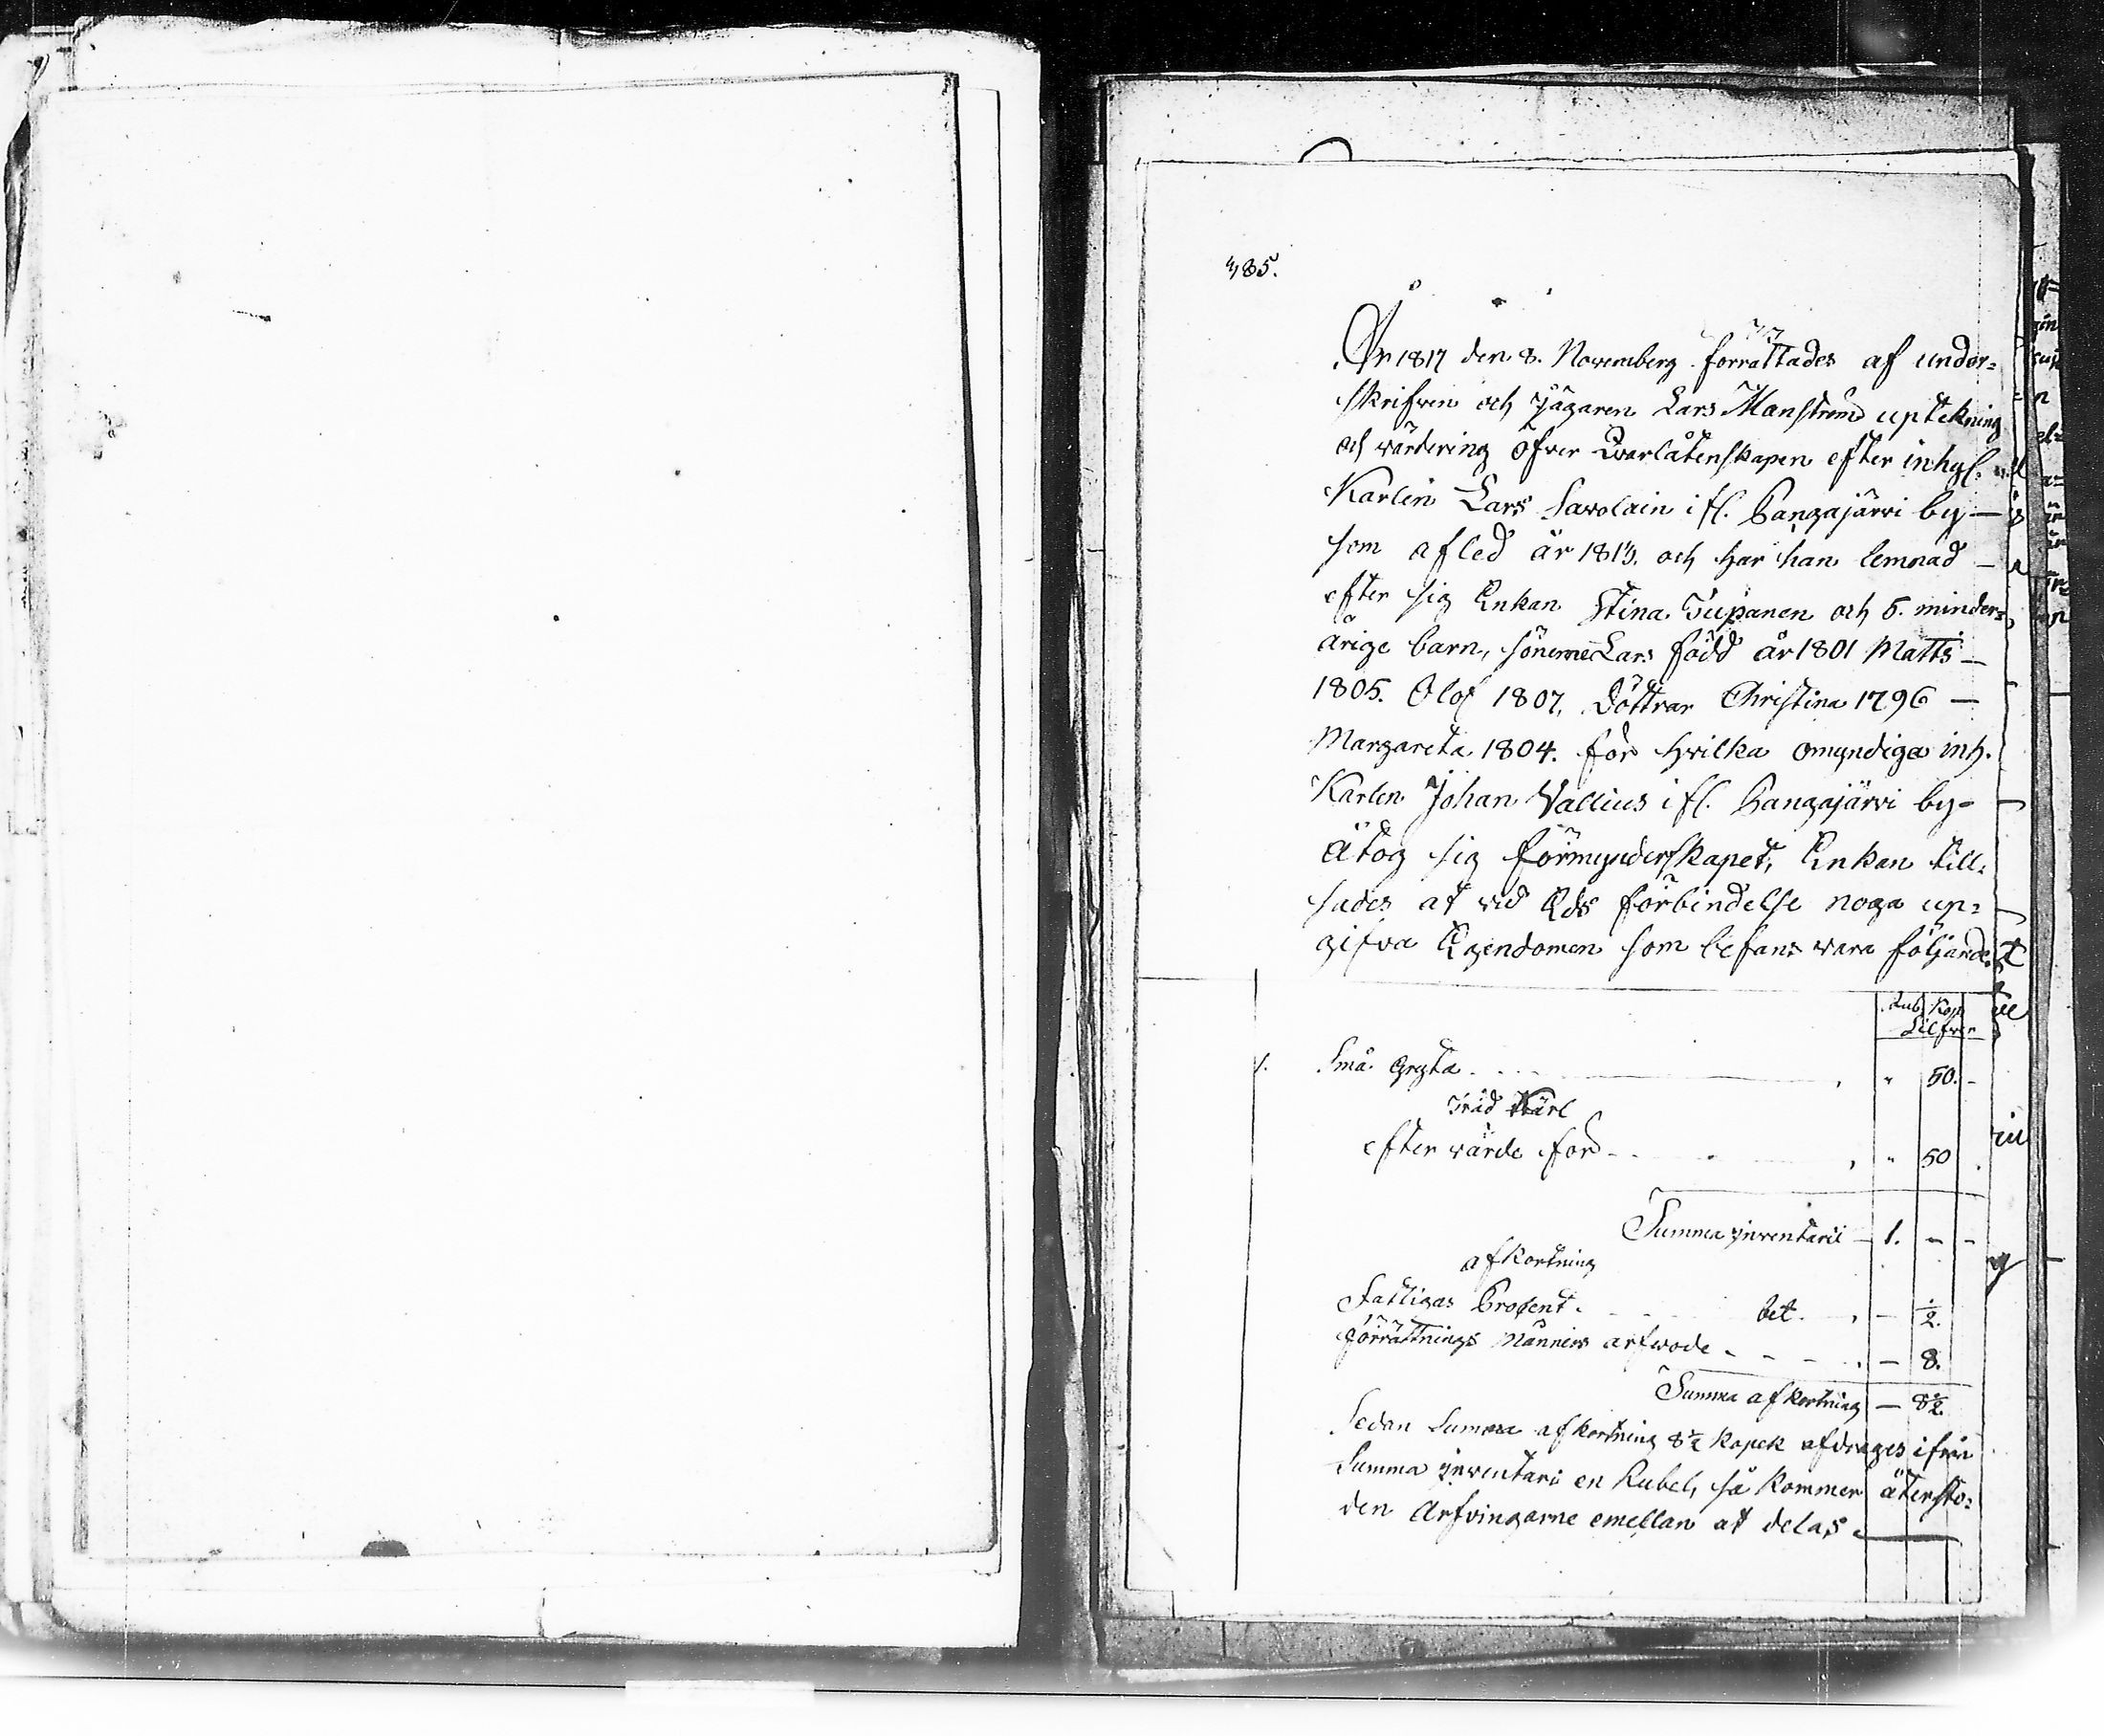 485.
År 1817 den 8. Novemberg förrättades af under-
skrifven och Jägaren Lars Manström uptekning
och värdering öfver Qvarlåtenskapen efter inhys.
Karlen Lars Savolain i fl. Pangajärvi by —
som afled år 1813. och har han lemnad —
efter sig Enkan Stina Tiupanen och 5. minder-
årige barn, sönerne Lars född år 1801 Matts —
1805. Olof 1807. Döttrar Christina 1796 —
Margareta 1804. för hvilka omyndiga inh.
Karlen Johan Vallius i fl. Pangajärvi by-
åtog sig förmynderskapet, Enkan till-
sades at vid Eds förbindelse noga up-
gifva Egendomen som befans vara följande.
Rub. Kop
Silfver
1. Små gryta " 50.
Träd Kärl
efter värde för " 50
Summa Inventarii — 1. — —
afkortning
Fattigas Procent. bet. — ½.
Förrättnings Männens arfvode — 8.
Summa afkortning — 8½.
Sedan Summa afkortning 8½ kopek afdrages ifrån
Summa Inventari en Rubel, så kommer återsto-
den Arfvingarne emellan at delas